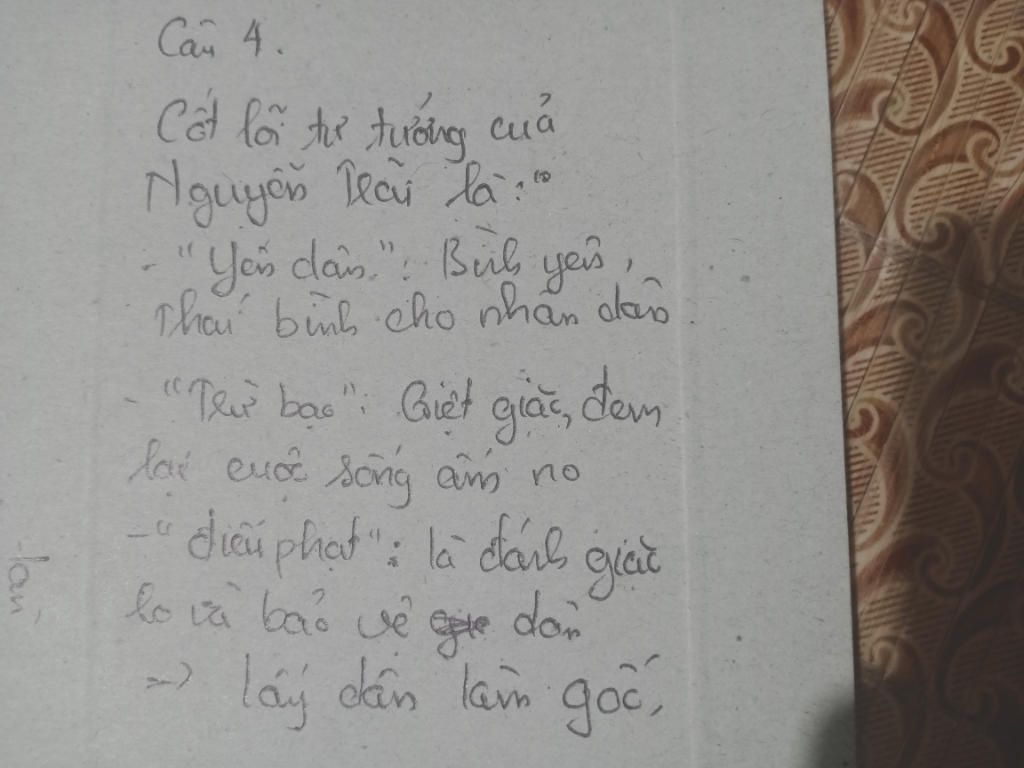 Câu 4.
Cốt lõi tư tưởng của
Nguyễn Trãi là:
- "Yên dân": Bình yên,
thái bình cho nhân dân
- "Trừ bạo": Giệt giặc, đem
lại cuộc sống ấm no
- "điếu phạt": là đánh giặc
lo và bảo vệ dân
-> lấy dân làm gốc,